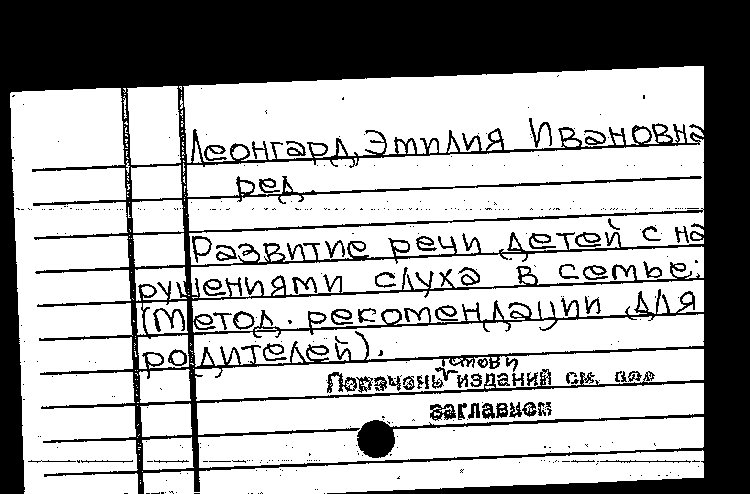 Леонгард, Эмилия Ивановна
ред.
Развитие речи детей с на
рушениями слуха в семье:
(Метод. рекомендации для
родителей).
томов и
Перечень изданий см. под
заглавием